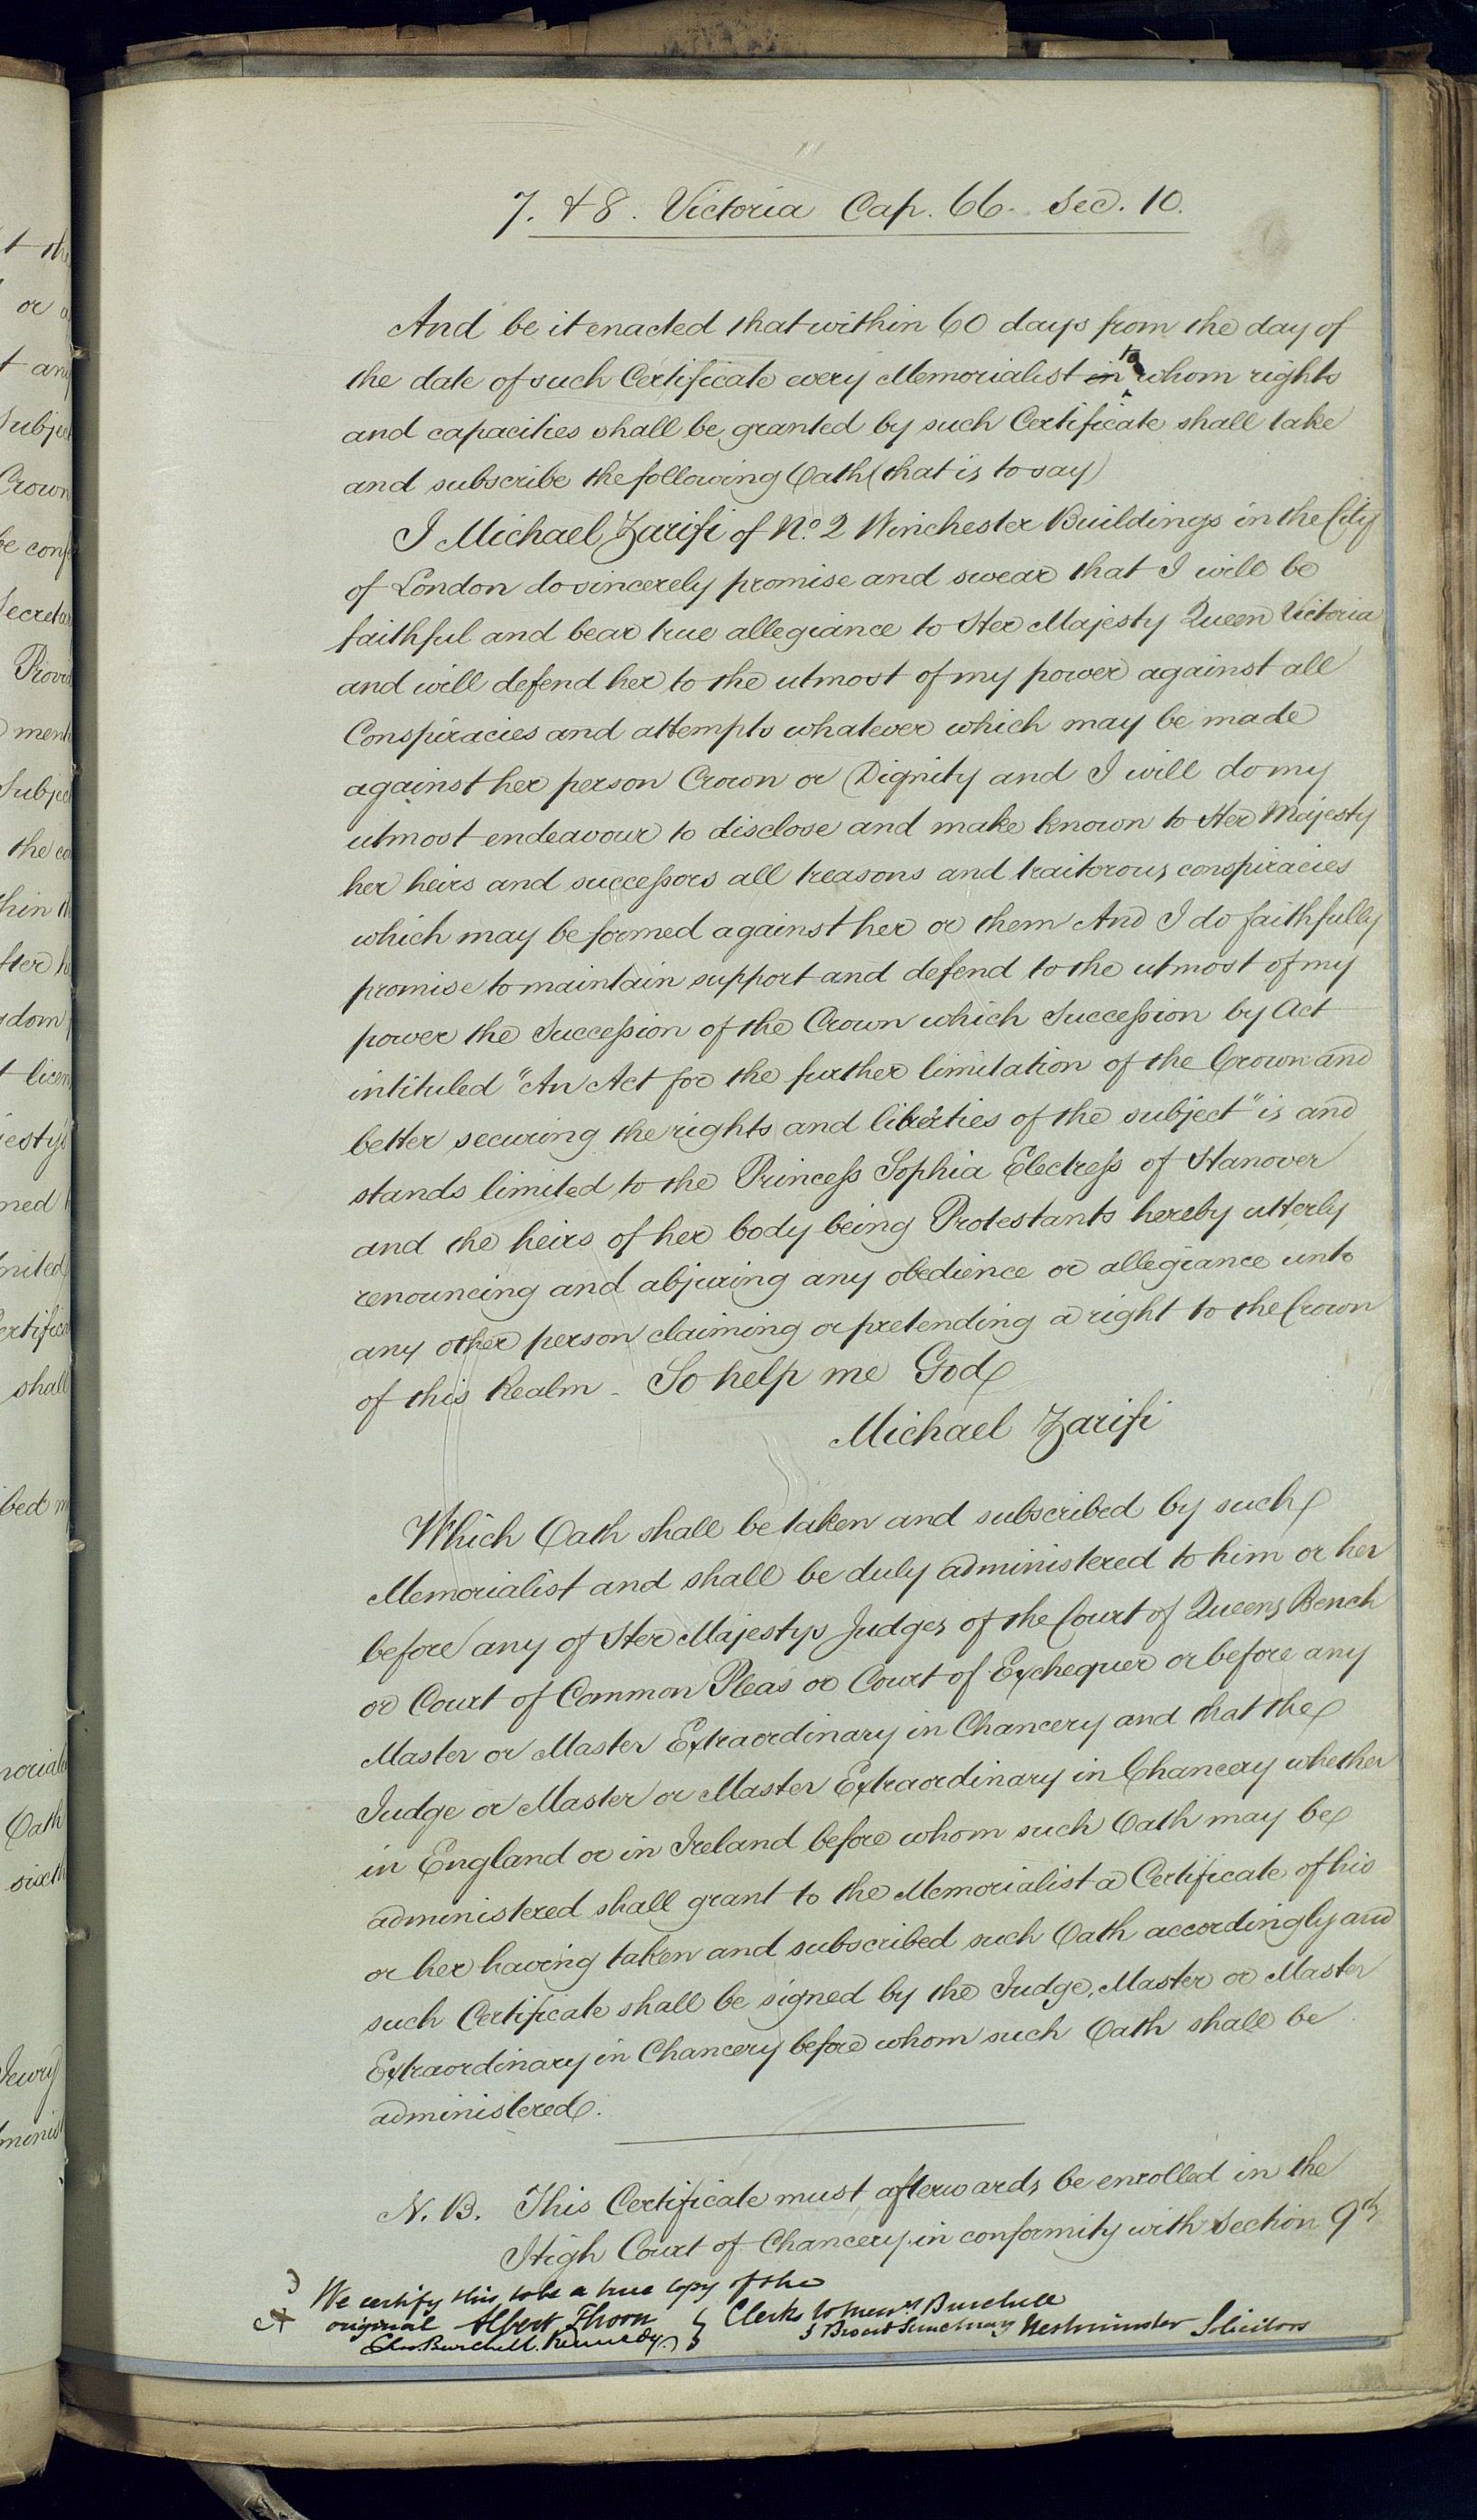 7. & 8. Victoria Cap. 66. Sec. 10.
And be it enacted that within 60 days from the day of
the date of such Certificate every Memorialist in to whom rights
and capacities shall be granted by such Certificate shall take
and subscribe the following Oath (that is to say)
I Michael Zarifi of No. 2 Winchester Buildings in the City
of London do sincerely promise and swear that I will be
faithful and bear true allegiance to Her Majesty Queen Victoria
and will defend her to the utmost of my power against all
Conspiracies and attempts whatever which may be made
against her person Crown or Dignity and I will do my
utmost endeavour to disclose and make known to Her Majesty
her heirs and successors all treasons and traitorous conspiracies
which may be formed against her or them And I do faithfully
promise to maintain support and defend to the utmost of my
power the Succession of the Crown which Succession by Act
intituled "An Act for the further limitation of the Crown and
better securing the rights and liberties of the subject" is and
stands limited to the Princess Sophia Electress of Hanover
and the heirs of her body being Protestants hereby utterly
renouncing and abjuring any obedience or allegiance unto
any other person claiming or pretending a right to the Crown
of this Realm - So help me God
Michael Zarifi
Which Oath shall be taken and subscribed by such
Memorialist and shall be duly administered to him or her
before any of Her Majestys Judges of the Court of Queens Bench
or Court of Common Pleas or Court of Exchequer or before any
Master or Master Extraordinary in Chancery and that the
Judge or Master or Master Extraordinary in Chancery whether
in England or in Ireland before whom such Oath may be
administered shall grant to the Memorialist a Certificate of his
or her having taken and subscribed such Oath accordingly and
such Certificate shall be signed by the Judge, Master or Master
Extraordinary in Chancery before whom such Oath shall be
administered.
N. B. This Certificate must afterwards be enrolled in the
High Court of Chancery in conformity with Section 9th
We certify this to be a true copy of the
original Albert Thorn } Clerks to Messrs Burchell
Burchell Kennedy 5 Broad Sanctuary Westminster Solicitors